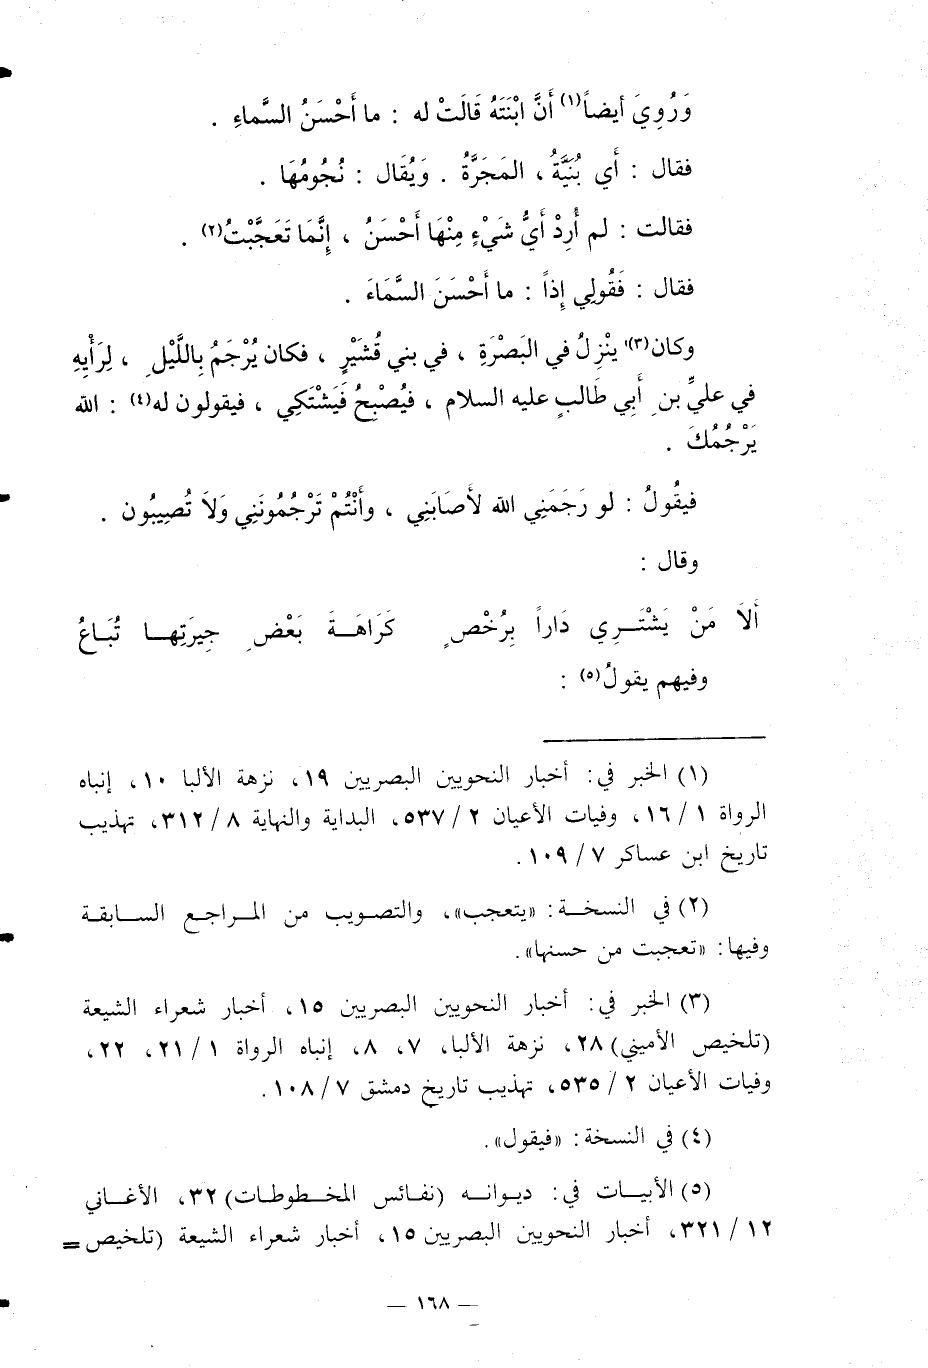 وَرُوِيَ أيضاً(١) أَنَّ ابْنَتَهُ قَالَتْ له : ما أَحْسَنُ السَّماءِ .
فقال : أَي بُنَيَّةُ ، المَجَرَّةُ . وَيُقَال : نُجُومُهَا .
فقالت : لم أُرِدْ أَيُّ شَيْءٍ مِنْهَا أَحْسَنُ ، إِنَّمَا تَعَجَّبْتُ(٢) .
فقال : فَقُولِي إِذاً : ما أَحْسَنَ السَّمَاءَ .
وكان(٣) ينْزِلُ في البَصْرَةِ ، في بني قُشَيْرٍ ، فكان يُرْجَمُ بِاللَّيْلِ ، لِرَأْيِهِ
في عليِّ بن أَبِي طَالبٍ عليه السلام ، فَيُصْبِحُ فَيَشْتَكِي ، فيقولون له(٤) : الله
يَرْجُمُكَ .
فيقُولُ : لو رَجَمَنِي الله لأَصَابَنِي ، وأَنْتُمْ تَرْجُمُونَنِي وَلاَ تُصِيبُون .
وقال :
أَلاَ مَنْ يَشْتَـرِي دَاراً بِرُخْصٍ كَرَاهَـةَ بَعْضِ جِيرَتِهـا تُبَـاعُ
وفيهم يقولُ(٥) :
(١) الخبر في: أخبار النحويين البصريين ١٩، نزهة الألبا ١٠، إنباه
الرواة ١ / ١٦، وفيات الأعيان ٢ / ٥٣٧، البداية والنهاية ٨ / ٣١٢، تهذيب
تاريخ ابن عساكر ٧ / ١٠٩.
(٢) في النسخـة: «يتعجب»، والتصـويب من المـراجـع السـابقـة
وفيها: «تعجبت من حسنها».
(٣) الخبر في: أخبار النحويين البصريين ١٥، أخبار شعراء الشيعة
(تلخيص الأميني) ٢٨، نزهة الألبا، ٧، ٨، إنباه الرواة ١ / ٢١، ٢٢،
وفيات الأعيان ٢ / ٥٣٥، تهذيب تاريخ دمشق ٧ / ١٠٨.
(٤) في النسخة: «فيقول».
(٥) الأبيـات في: ديـوانـه (نفـائس المخـطوطـات) ٣٢، الأغـاني
١٢ / ٣٢١، أخبار النحويين البصريين ١٥، أخبار شعراء الشيعة (تلخيص =
— ١٦٨ —